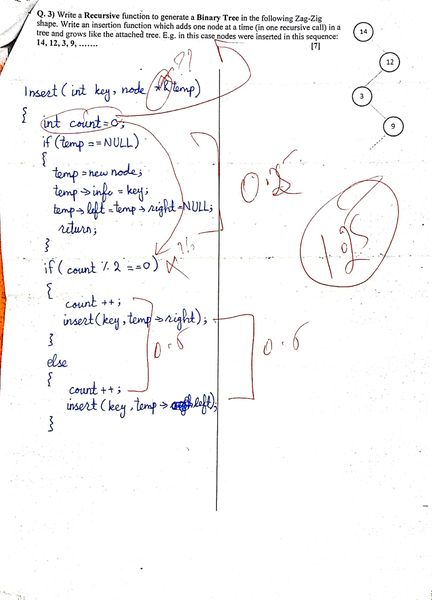 Q. 3) Write a Recursive function to generate a Binary Tree in the following Zag-Zig
shape. Write an insertion function which adds one node at a time (in one recursive call) in a
tree and grows like the attached tree. E.g. in this case nodes were inserted in this sequence:
14, 12, 3, 9, .......
[7]
14
12
3
9
??
Insert ( int key, node temp)
{ int count=0;
if (temp == NULL)
{
temp = new node;
temp → info = key;
temp → left = temp → right = NULL;
return;
}
if ( count % 2 == 0)
{
count ++ ;
insert( key , temp → right) ;
}
else
{
count ++ ;
insert ( key , temp → left);
}
0.5
0.5